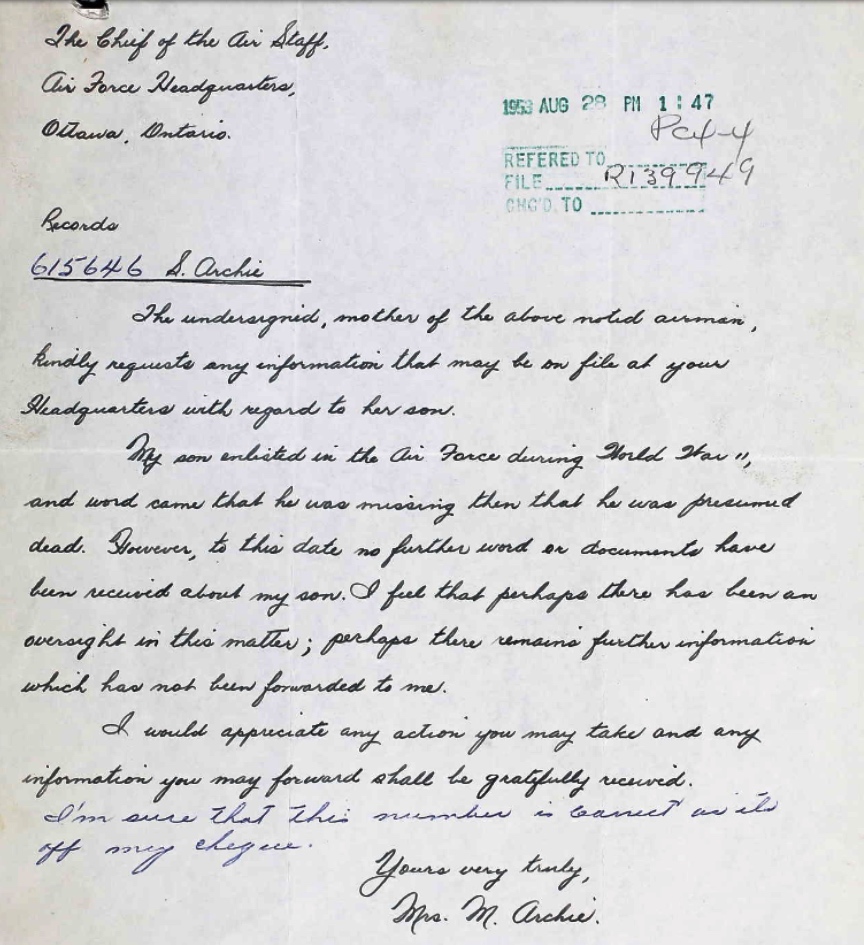 The Chief of the Air Staff,
Air Force Headquarters,
Ottawa, Ontario.
1953 AUG 28 PM 1:47
REFERED TO
FILE R139949
CHG'D. TO
Records
615646 S. Archie
The undersigned, mother of the above noted airman,
kindly requests any information that may be on file at your
Headquarters with regard to her son.
My son enlisted in the Air Force during World War 11,
and word came that he was missing then that he was presumed
dead. However, to this date no further word or documents have
been received about my son. I feel that perhaps there has been an
oversight in this matter; perhaps there remains further information
which has not been forwarded to me.
I would appreciate any action you may take and any
information you may forward shall be gratefully received.
I'm sure that this number is correct as its
off my cheque.
Yours very truly,
Mrs. M. Archie.